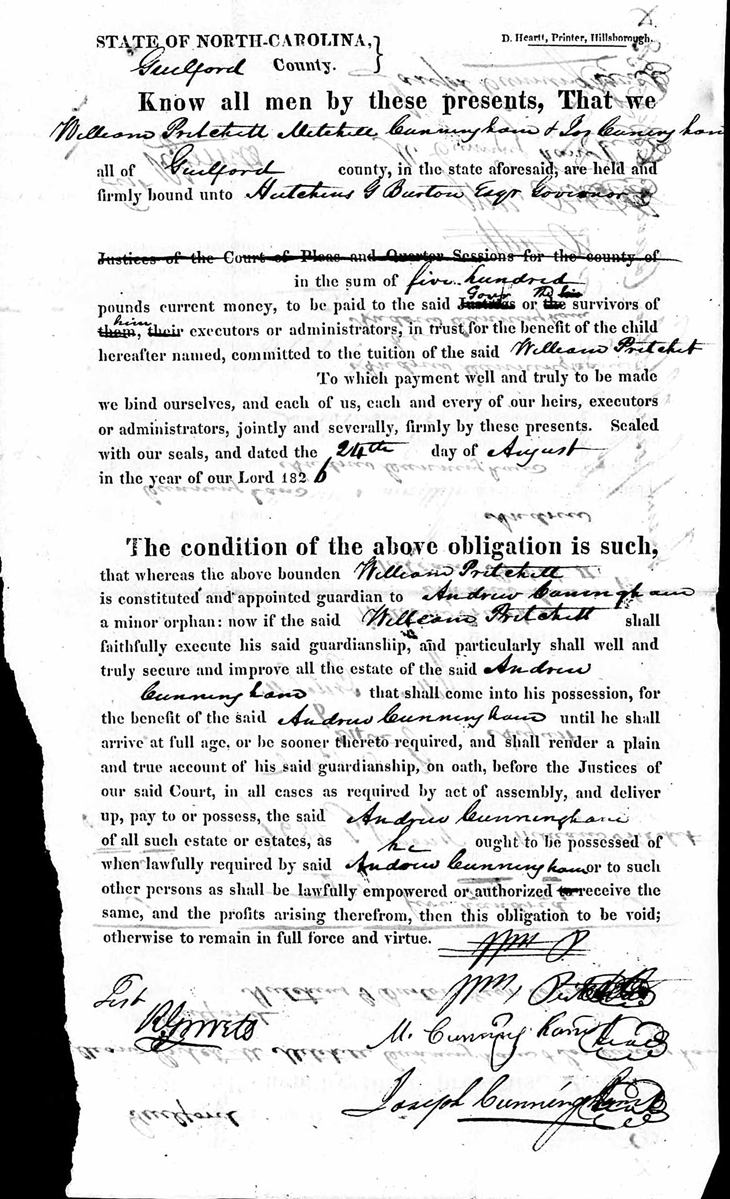 STATE OF NORTH-CAROLINA,
D. Heartt, Printer, Hillsborough.
Guilford County.
Know all men by these presents, That we
William Pritchett Mitchell Cunningham & Jos Cuningham
all of Guilford county, in the state aforesaid, are held and
firmly bound unto Hutchins G Burton Esqr Governor
Justices of the Court of Pleas and Quarter Sessions for the county of
in the sum of five hundred
pounds current money, to be paid to the said Justices Govr or the survivors of
them, him their executors or administrators, in trust for the benefit of the child
hereafter named, committed to the tuition of the said William Pritchet
To which payment well and truly to be made
we bind ourselves, and each of us, each and every of our heirs, executors
or administrators, jointly and severally, firmly by these presents. Sealed
with our seals, and dated the 24th day of August
in the year of our Lord 1826
The condition of the above obligation is such,
that whereas the above bounden William Pritchett
is constituted and appointed guardian to Andrew Cuningham
a minor orphan: now if the said William Pritchett shall
faithfully execute his said guardianship, and particularly shall well and
truly secure and improve all the estate of the said Andrew
Cunningham that shall come into his possession, for
the benefit of the said Andrew Cunningham until he shall
arrive at full age, or be sooner thereto required, and shall render a plain
and true account of his said guardianship, on oath, before the Justices of
our said Court, in all cases as required by act of assembly, and deliver
up, pay to or possess, the said Andrew Cunningham
of all such estate or estates, as he ought to be possessed of
when lawfully required by said Andrew Cunningham or to such
other persons as shall be lawfully empowered or authorized to receive the
same, and the profits arising therefrom, then this obligation to be void;
otherwise to remain in full force and virtue.
Wm P
Test
Wm
M. Cunningham seal
Joseph Cunningham seal